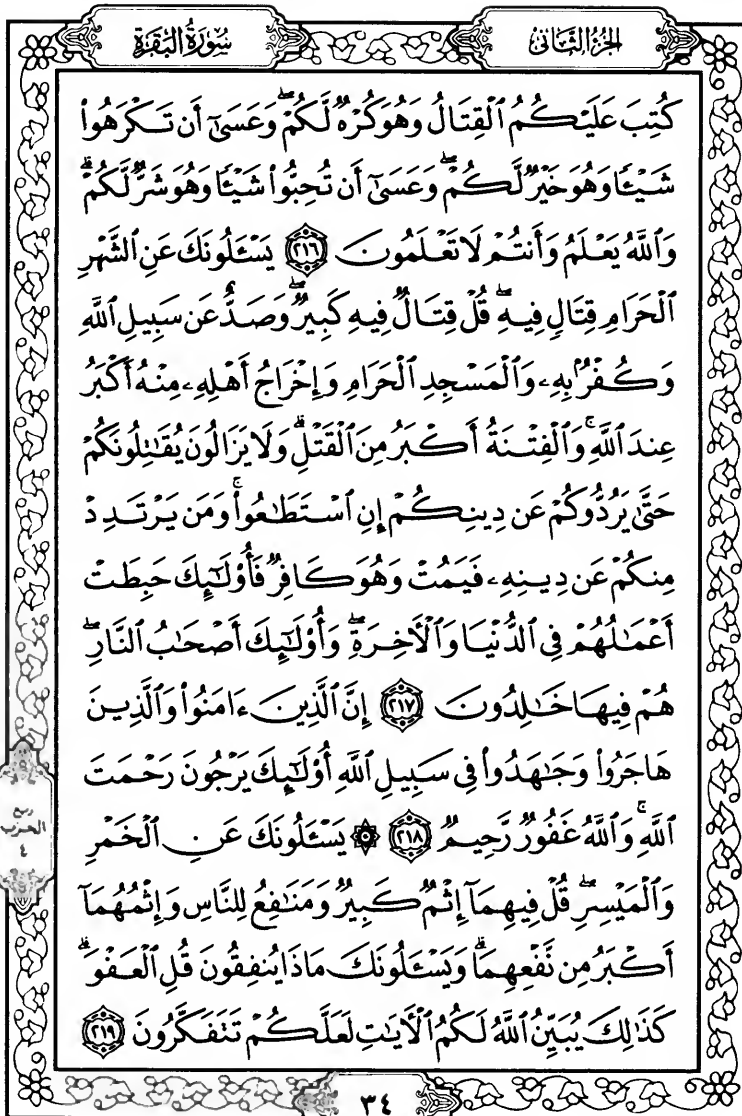 الجزء الثاني
سورة البقرة
كُتِبَ عَلَيْكُمُ ٱلْقِتَالُ وَهُوَ كُرْهٌ لَّكُمْ ۖ وَعَسَىٰٓ أَن تَكْرَهُوا۟
شَيْـًٔا وَهُوَ خَيْرٌ لَّكُمْ ۖ وَعَسَىٰٓ أَن تُحِبُّوا۟ شَيْـًٔا وَهُوَ شَرٌّ لَّكُمْ ۗ
وَٱللَّهُ يَعْلَمُ وَأَنتُمْ لَا تَعْلَمُونَ ٢١٦ يَسْـَٔلُونَكَ عَنِ ٱلشَّهْرِ
ٱلْحَرَامِ قِتَالٍ فِيهِ ۖ قُلْ قِتَالٌ فِيهِ كَبِيرٌ ۖ وَصَدٌّ عَن سَبِيلِ ٱللَّهِ
وَكُفْرٌۢ بِهِۦ وَٱلْمَسْجِدِ ٱلْحَرَامِ وَإِخْرَاجُ أَهْلِهِۦ مِنْهُ أَكْبَرُ
عِندَ ٱللَّهِ ۚ وَٱلْفِتْنَةُ أَكْبَرُ مِنَ ٱلْقَتْلِ ۗ وَلَا يَزَالُونَ يُقَٰتِلُونَكُمْ
حَتَّىٰ يَرُدُّوكُمْ عَن دِينِكُمْ إِنِ ٱسْتَطَٰعُوا۟ ۚ وَمَن يَرْتَدِدْ
مِنكُمْ عَن دِينِهِۦ فَيَمُتْ وَهُوَ كَافِرٌ فَأُو۟لَٰٓئِكَ حَبِطَتْ
أَعْمَٰلُهُمْ فِى ٱلدُّنْيَا وَٱلْـَٔاخِرَةِ ۖ وَأُو۟لَٰٓئِكَ أَصْحَٰبُ ٱلنَّارِ ۖ
هُمْ فِيهَا خَٰلِدُونَ ٢١٧ إِنَّ ٱلَّذِينَ ءَامَنُوا۟ وَٱلَّذِينَ
هَاجَرُوا۟ وَجَٰهَدُوا۟ فِى سَبِيلِ ٱللَّهِ أُو۟لَٰٓئِكَ يَرْجُونَ رَحْمَتَ
ٱللَّهِ ۚ وَٱللَّهُ غَفُورٌ رَّحِيمٌ ٢١٨ ۞ يَسْـَٔلُونَكَ عَنِ ٱلْخَمْرِ
وَٱلْمَيْسِرِ ۖ قُلْ فِيهِمَآ إِثْمٌ كَبِيرٌ وَمَنَٰفِعُ لِلنَّاسِ وَإِثْمُهُمَآ
أَكْبَرُ مِن نَّفْعِهِمَا ۗ وَيَسْـَٔلُونَكَ مَاذَا يُنفِقُونَ قُلِ ٱلْعَفْوَ ۗ
كَذَٰلِكَ يُبَيِّنُ ٱللَّهُ لَكُمُ ٱلْـَٔايَٰتِ لَعَلَّكُمْ تَتَفَكَّرُونَ ٢١٩
ربع
الحزب
٤
٣٤